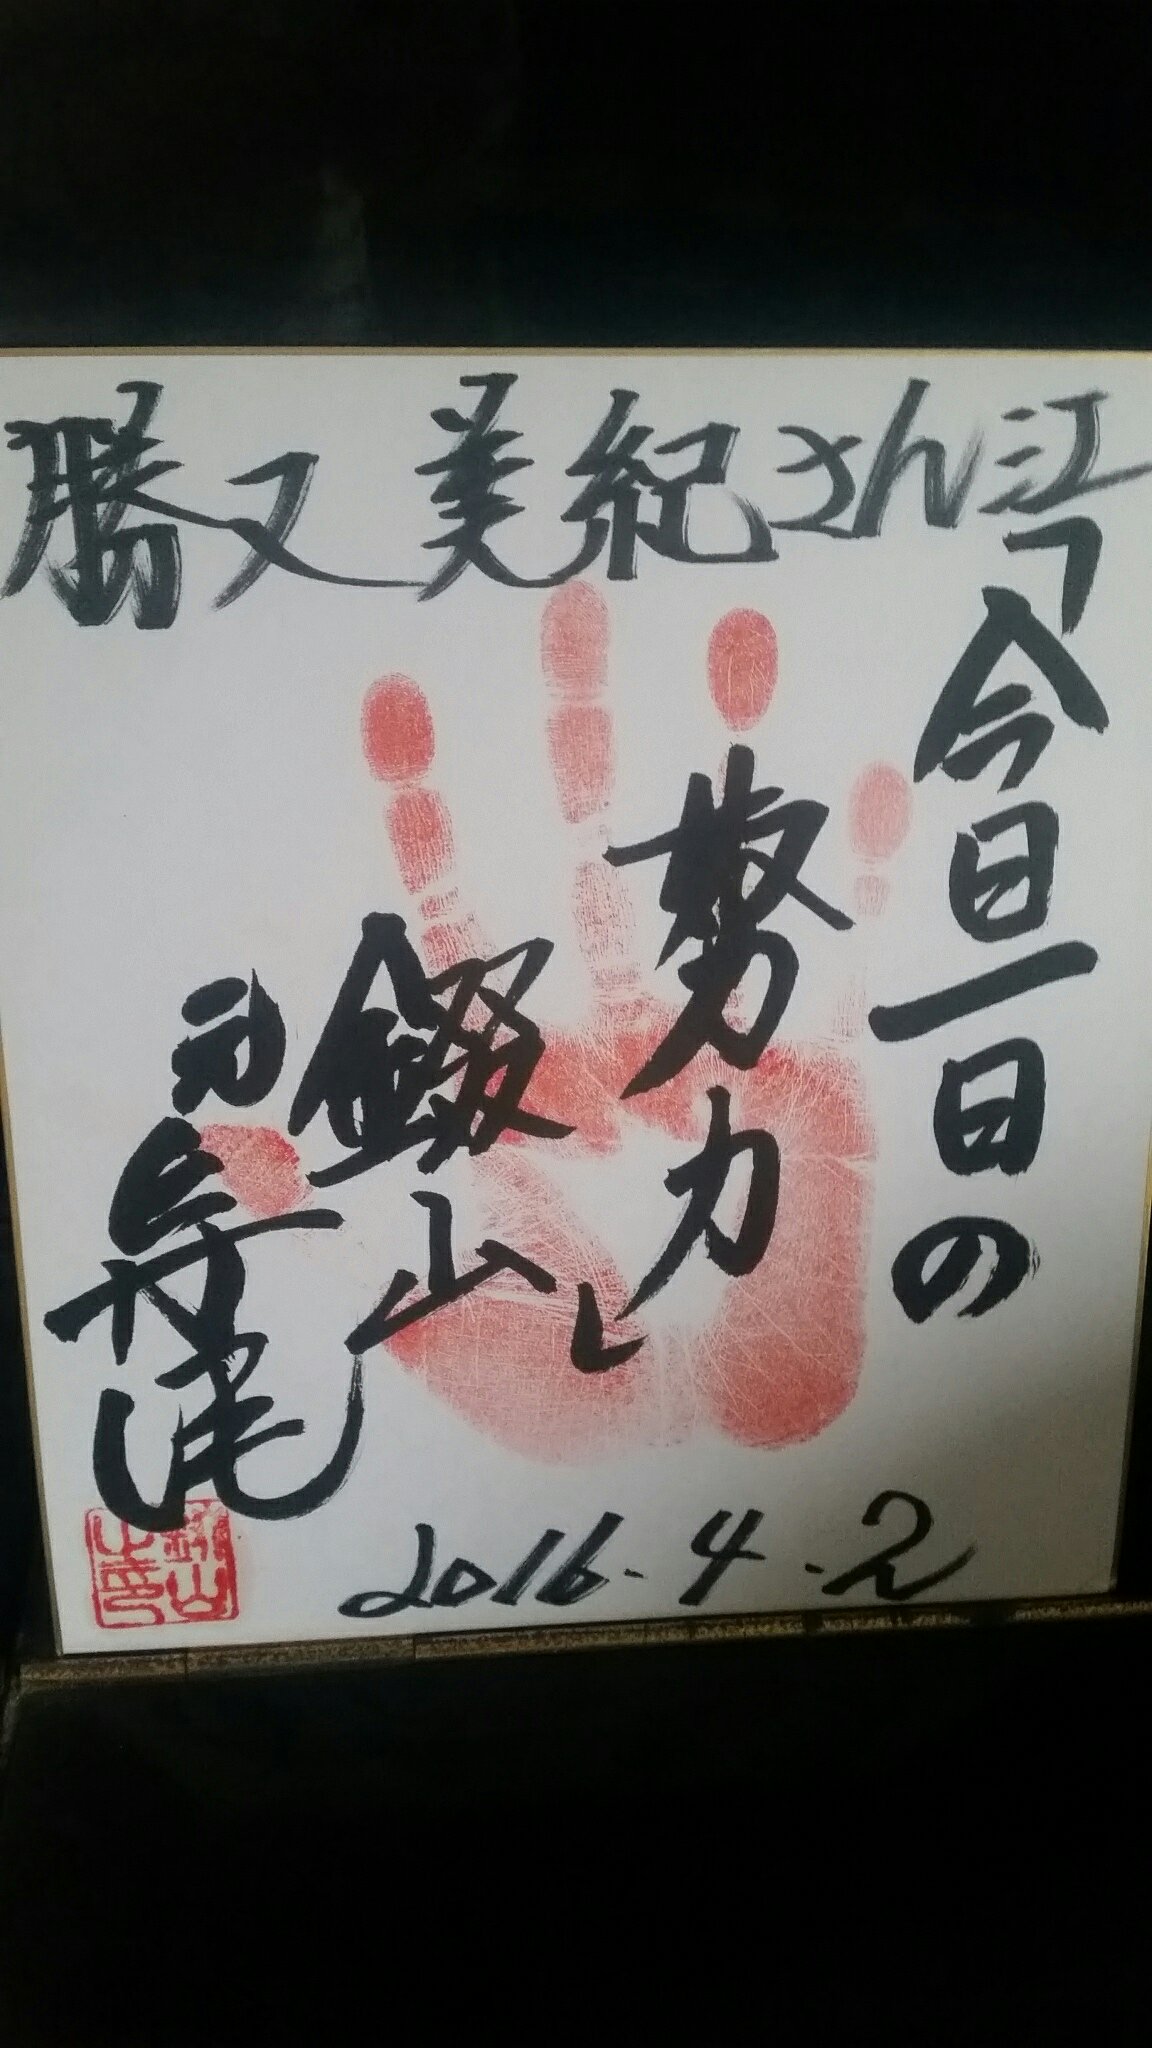 勝又美紀さん江
「今日一日の
努力」
錣山
元寺尾
2016.4.2